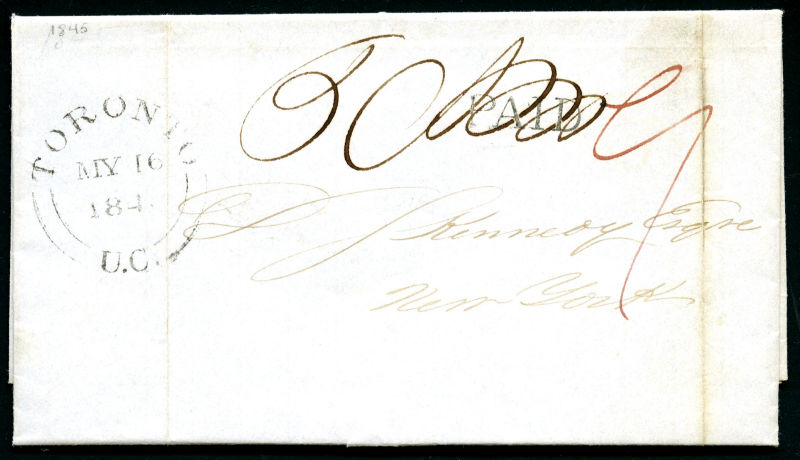 1845
TORONTO
MY 16
184
U.C.
PAID
J Kennedy Esqre
New York